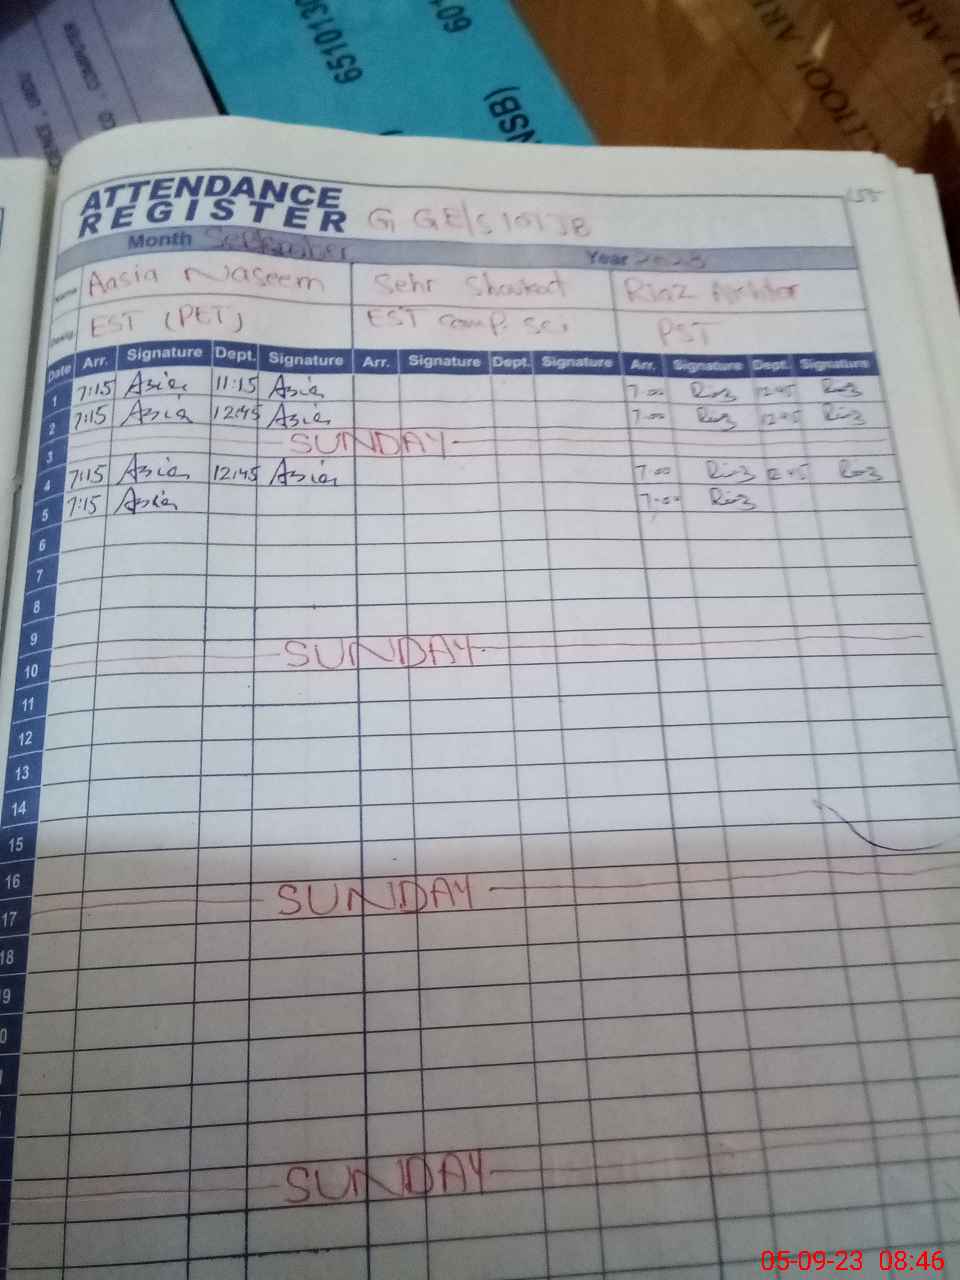 65101130
601
NSB)
COMPUTER
URDU
ATTENDANCE
REGISTER
Month September Year 2023
Name Aasia Naseem Sehr Shoukat Riaz Akhtar
Desig. EST (PET) EST Comp. Sci PST
Date Arr. Signature Dept. Signature Arr. Signature Dept. Signature Arr. Signature Dept. Signature
1 7:15 Asia 11:15 Asia 7:00 Riaz 12:45 Riaz
2 7:15 Asia 12:45 Asia 7:00 Riaz 12:45 Riaz
3 SUNDAY
4 7:15 Asia 12:45 Asia 7:00 Riaz 12:45 Riaz
5 7:15 Asia 7:00 Riaz
6
7
8
9
10 SUNDAY
11
12
13
14
15
16
17 SUNDAY
18
9
0
SUNDAY
05-09-23 08:46